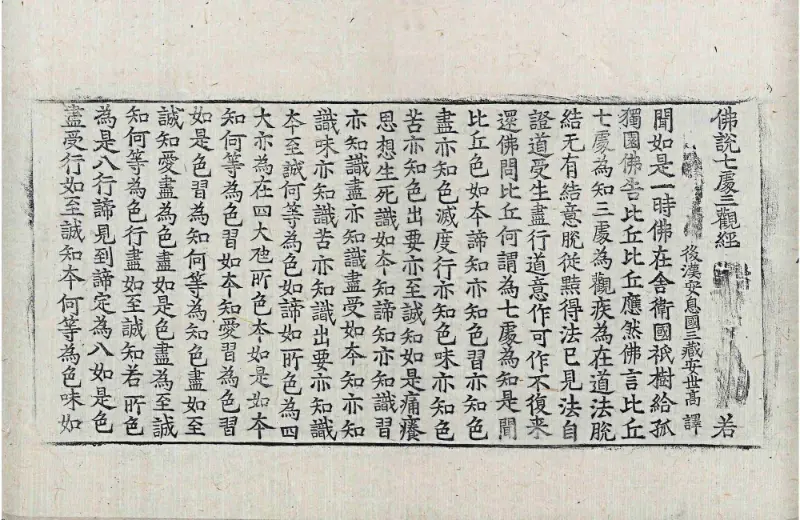 佛說七處三觀經 若
後漢安息國三藏安世高 譯
聞如是一時佛在舍衛國祇樹給孤
獨國佛告比丘比丘應然佛言比丘
七處為知三處為觀疾為在道法脫
結无有結意脫從黠得法已見法自
證道受生盡行道意作可作不復来
還佛問比丘何謂為七處為知是聞
比丘色如夲諦知亦知色習亦知色
盡亦知色滅度行亦知色味亦知色
苦亦知色出要亦至誠知如是痛癢
思想生死識如夲知諦知亦知識習
亦知識盡亦知識盡受如夲知亦知
識味亦知識苦亦知識出要亦知識
夲至誠何等為色如諦如所色為四
大亦為在四大虺所色夲如是如夲
知何等為色習如夲知愛習為色習
如是色習為知何等為知色盡如至
誠知愛盡為色盡如是色盡為至誠
知何等為色行盡如至誠知若所色
為是八行諦見到諦定為八如是色
盡受行如至誠知夲何等為色味如